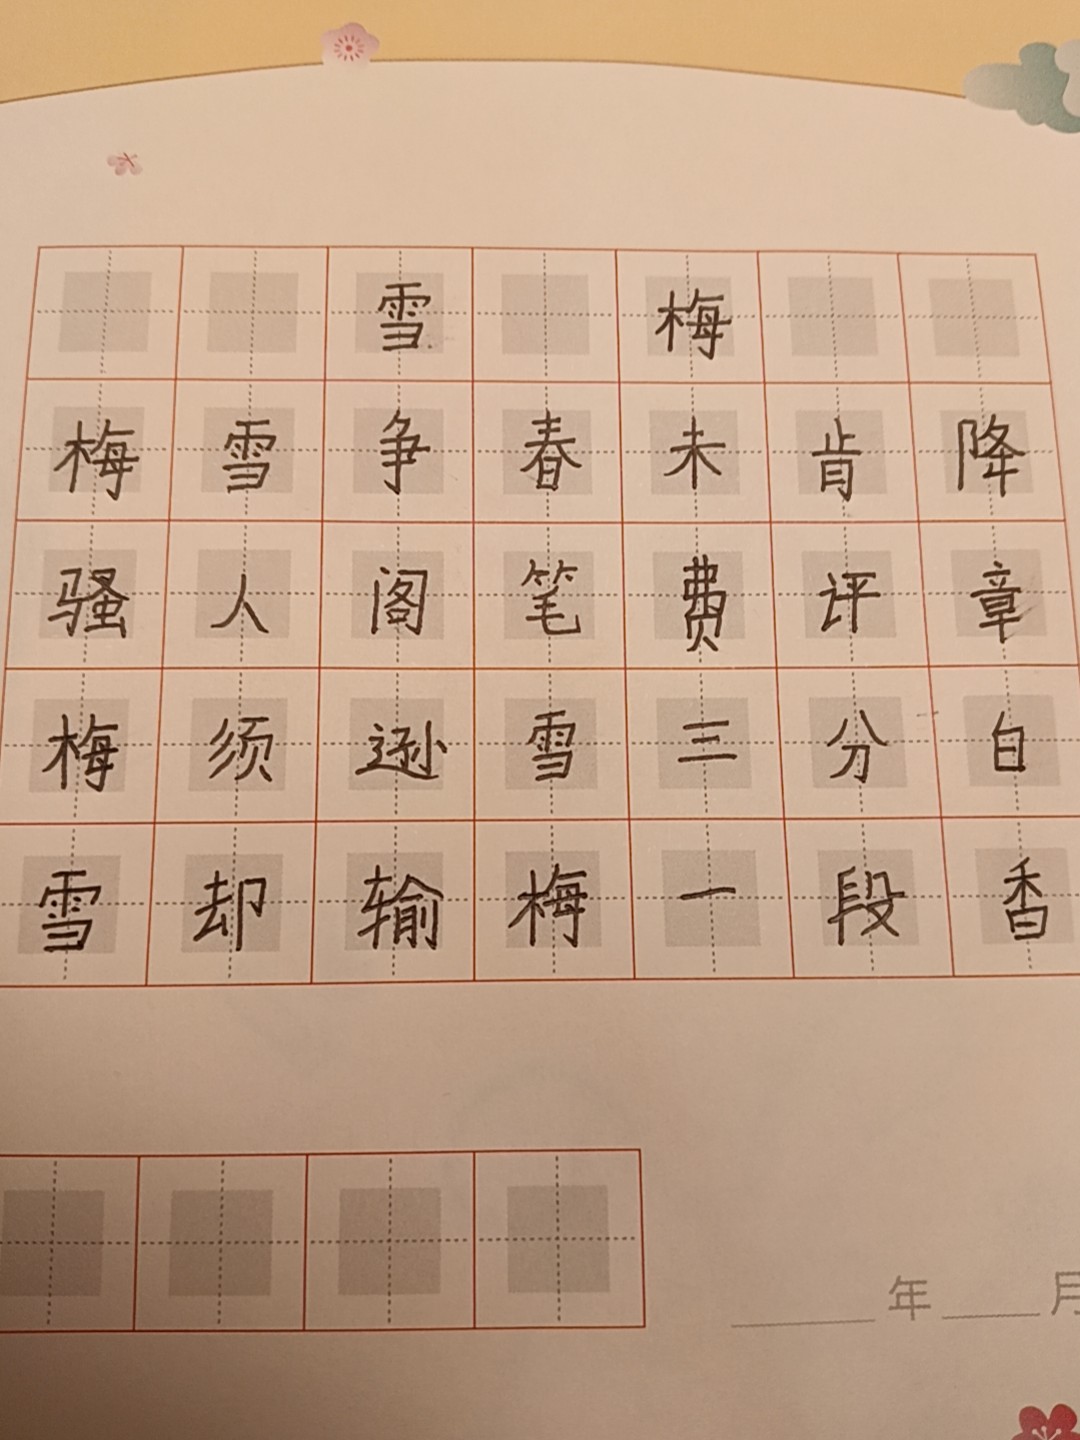 雪 梅
梅雪争春未肯降
骚人阁笔费评章
梅须逊雪三分白
雪却输梅一段香
年 月